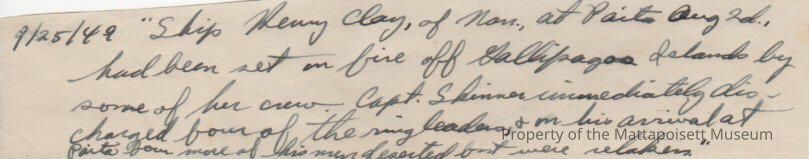 9/25/49 "Ship Henry Clay, of Nan., at Paita Aug 2d.,
had been set on fire off Gallipagos Islands by
some of her crew. Capt. Skinner immediately dis-
charged four of the ringleaders, & on his arrival at
Paita four more of his men deserted but were retaken."
Property of the Mattapoisett Museum